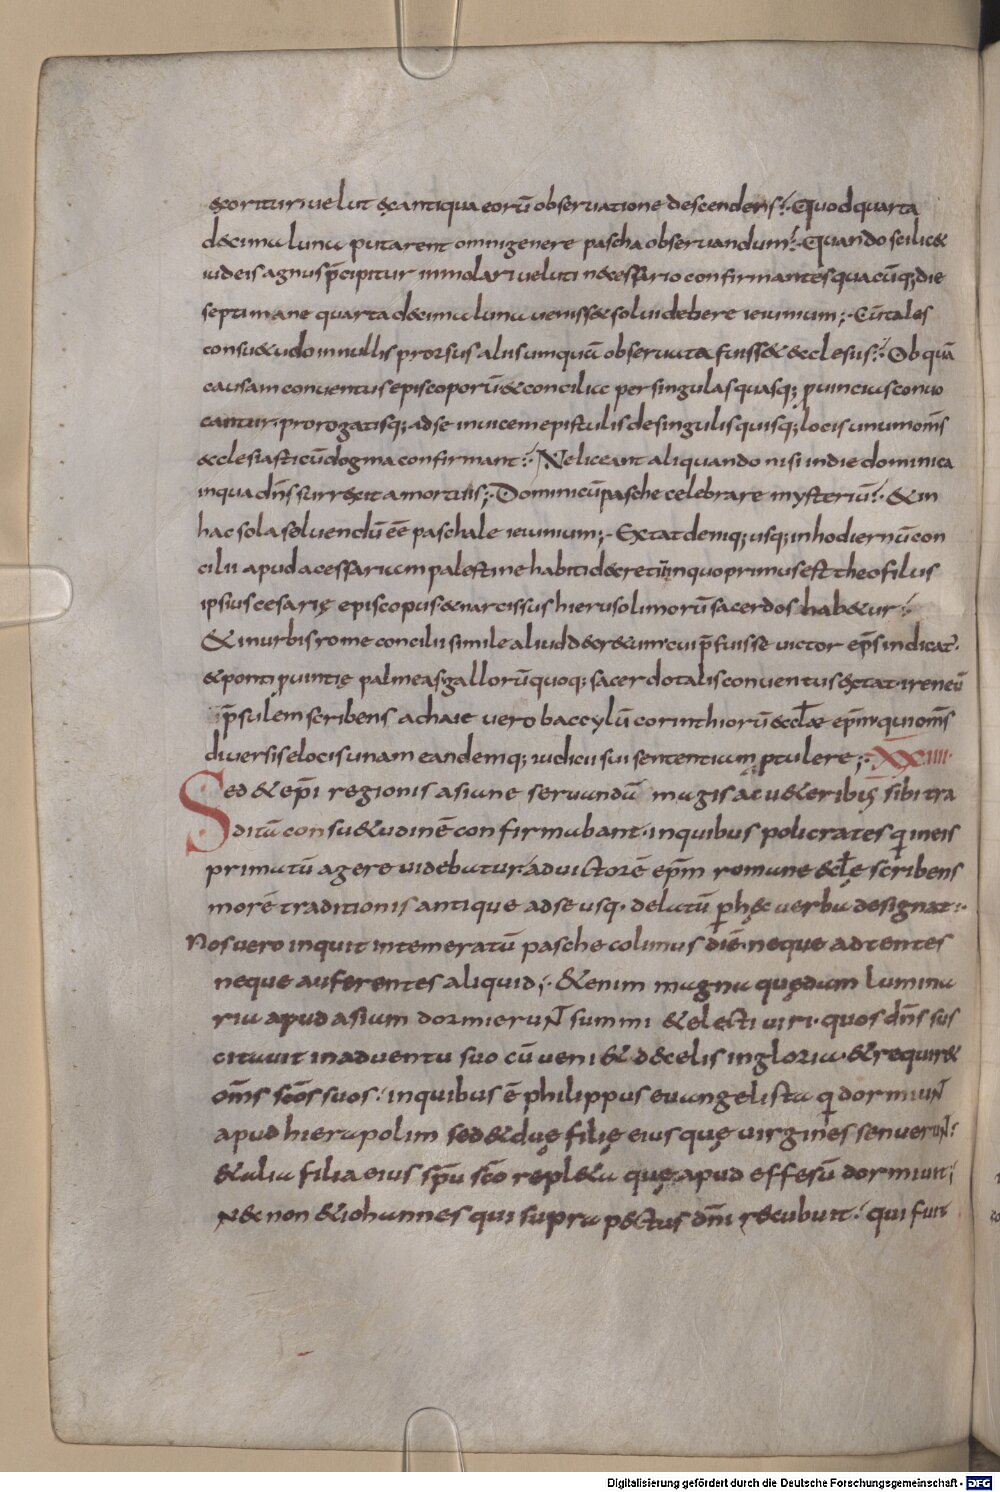 &xoritur uelut &x antiqua eorū obseruatione descendens⁏ Quod quarta
decima luna putarent omni genere pascha obseruandum⁏ Quando scilic&
iudeis agnus p̄cipitur immolari ueluti necessario confirmantes qua cūq; die
septimane quarta decima luna uenisset solui debere ieiunium; Cū tales
consu&udo in nullis prorsus aliis umquā obseruata fuiss& ecclesiis⁏ Ob quā
causam conuentus episcoporū & concilia per singulas quasq; prouincias conuo
cantur. prorogatisq; ad se inuicem epistulis de singulis quisq; locis unum om̄s
ecclesiasticū dogma confirmant⁏ Ne liceant aliquando nisi in die dominica
in qua dn̄s surrexit a mortuis; Dominicū pasche celebrare mysteriū⁏ & in
hac sola soluendū eē paschale ieiunium; Extat deniq; usq; in hodiernū con
cilii apud acessarium palestine habiti decretū in quo primus est theofilus
ipsius cesarię episcopus & narcissus hierusolimorū sacerdos hab&ur⁏
& in urbis rome concilii simile aliud decr&um cui p̄fuisse uictor ep̄s indicat̄.
& ponti puintię palmeas gallorū quoq; sacerdotalis conuentus extat. ireneū
p̄sulem scribens achaie uero baccylū corinthiorū eccƚae ep̄m. qui om̄s
diuersis e locis unam eandemq; iudicii sui sententiam ptulere; XXIIII.
Sed & ep̄i regionis asiane seruandā magis a u&eribus sibi tra
ditā consu&udinē confirmabant. in quibus policrates qi in eis
primatū agere uidebatur. ad uictorē ep̄m romane eccƚę scribens
morē traditionis antique ad se usq. delatū p hęc uerba designat:
Nos uero inquit intemeratū pasche colimus diē. neque adtentes
neque auferentes aliquid; & enim magna quędam lumina
ria apud asiam dormierunt summi & electi uiri. quos dn̄s sus
citauit in aduentu suo cū ueni& de celis in gloria. & requir&
om̄s sc̄os suos⁏ in quibus ē philippus euangelista qi dormiunt
apud hierapolim sed & duę filię eius quę uirgines senuerunt:
& alia filia eius sp̄u sc̄o repl&a quę apud effesū dormiuit;
Nec non & iohannes qui supra pectus dn̄i recubuit⁏ qui fuit